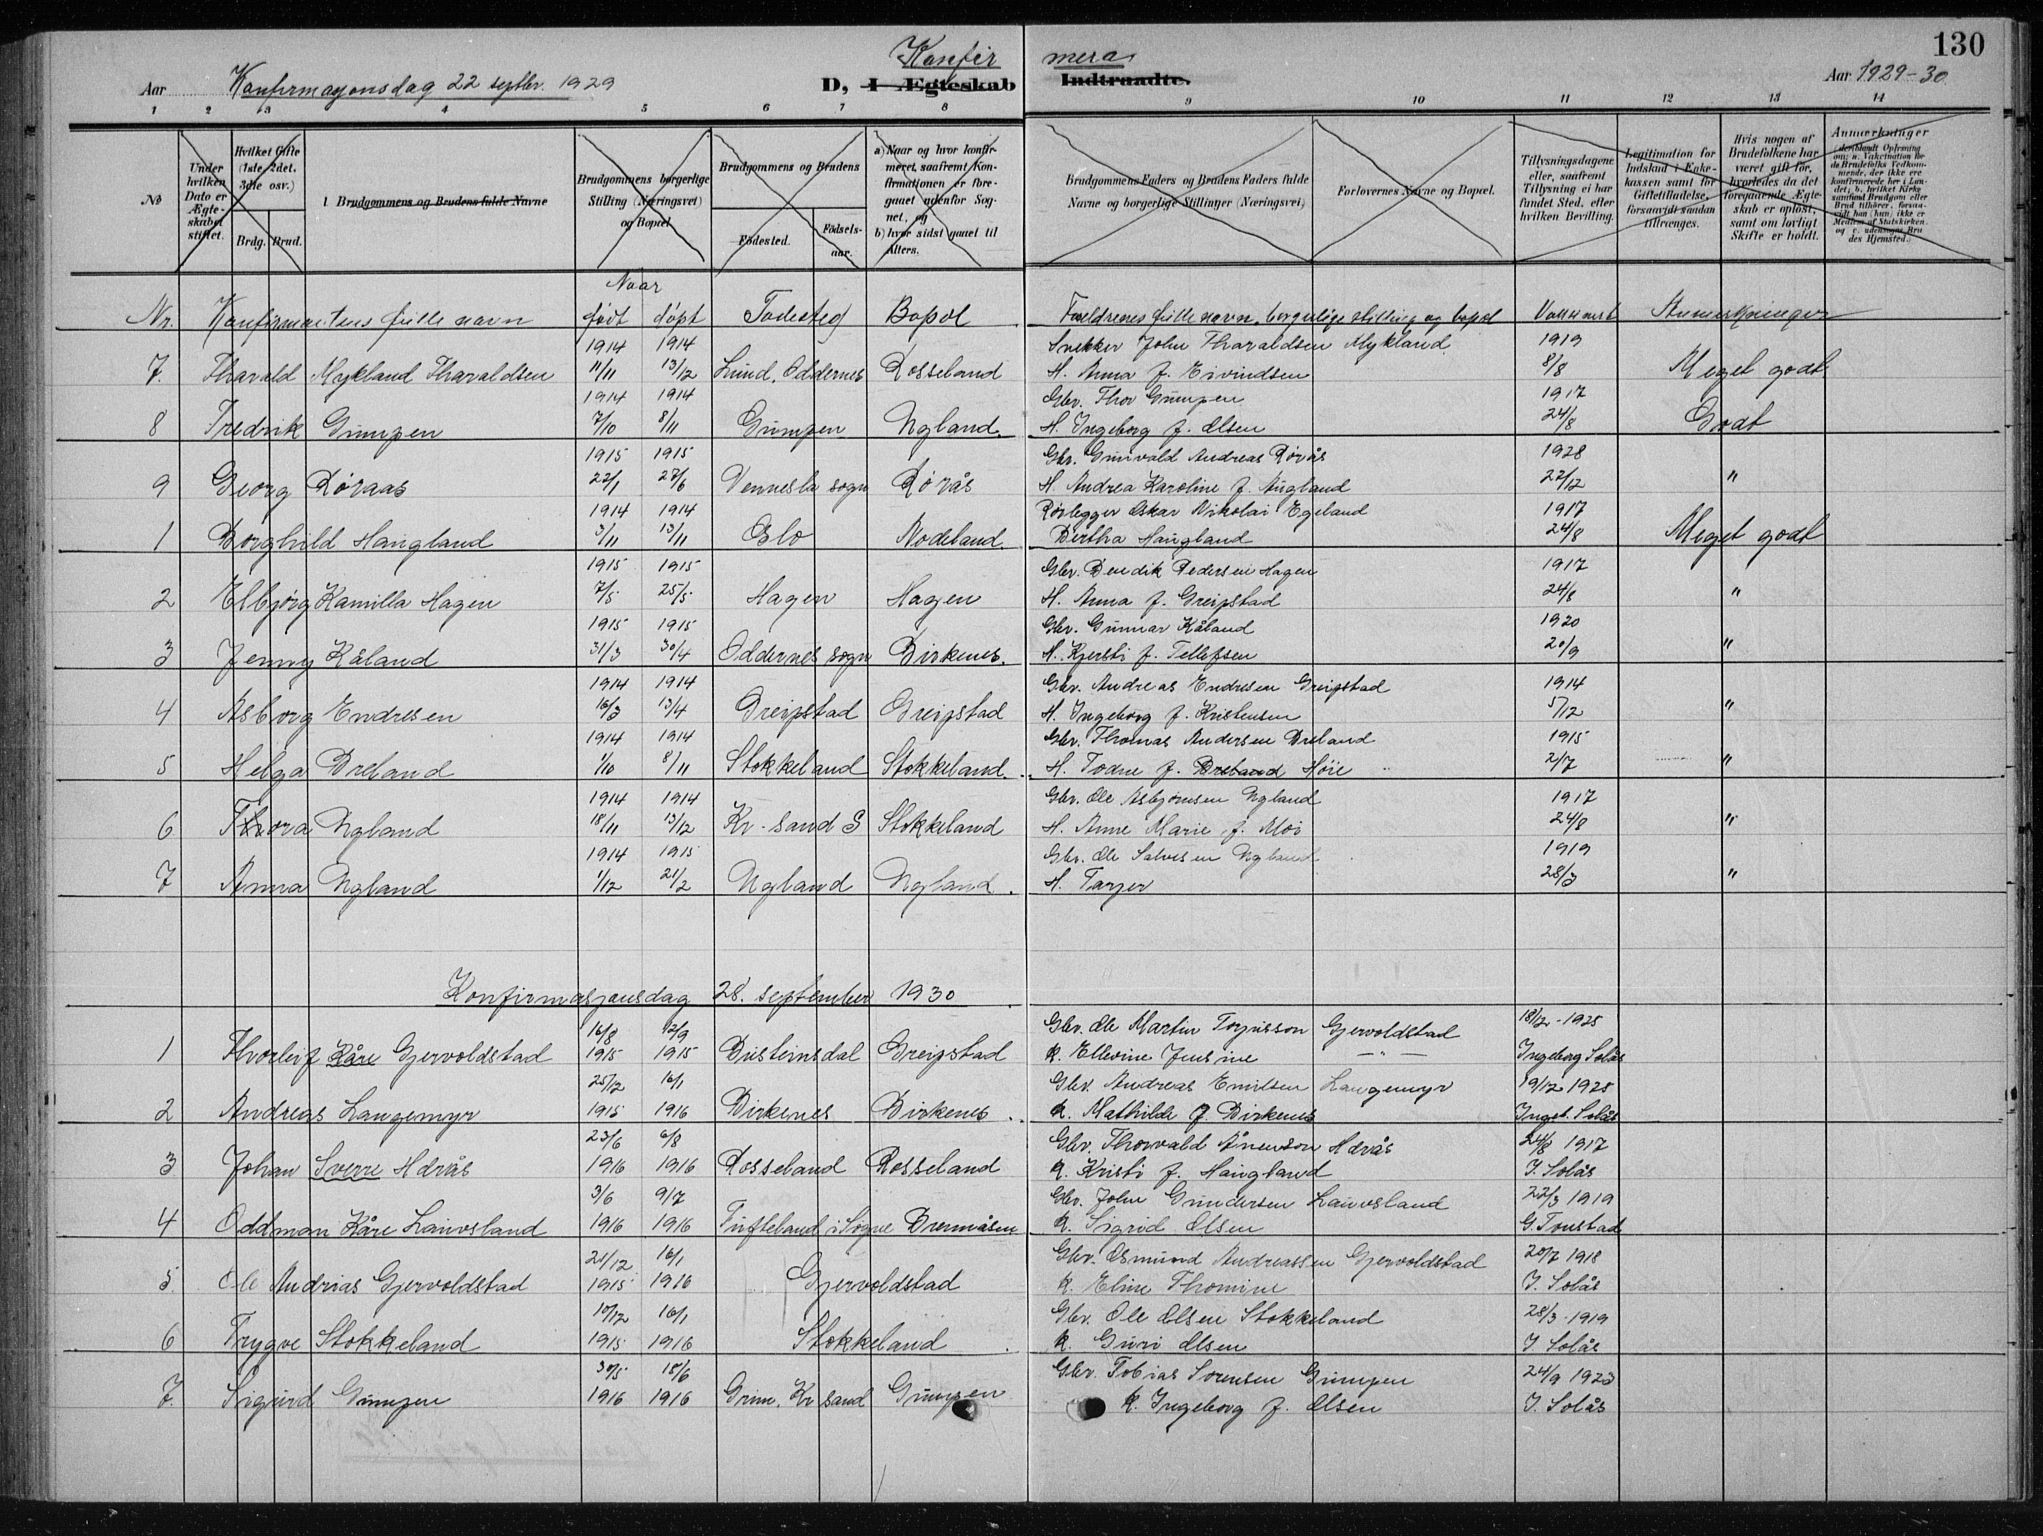 130
Konfirmasjonsdag 22 septbr. 1929
Konfir mera
Aar D, I Ægteskab Indtraadte. Aar 1929-30
1 2 3 4 5 6 7 8 9 10 11 12 13 14
No
Under hvilken Dato er Ægteskabet stiftet.
Hvilket Gifte (1ste 2det, 3die osv.)
Brdg. Brud.
1 Brudgommens og Brudens fulde Navne
Brudgommens borgerlige Stilling (Næringsvei) og Bopæl
Brudgommens og Brudens
Födested. Födsels-aar.
a) Naar og hvor konfirmeret, saafremt Konfirmationen er foregaaet udenfor Sognet, og
b) hvor sidst gaaet til Alters.
Brudgommens Faders og Brudens Faders fulde Navne og borgerlige Stillinger (Næringsvei)
Forlovernes Navne og Bopæl.
Tillysningsdagene eller, saafremt Tillysning ei har fundet Sted, efter hvilken Bevilling.
Legitimation for Indskud i Enkekassen samt for Giftetilladelse, forsaavidt saadan tiltrænges.
Hvis nogen af Brudefolkene har været gift för, hvorledes da det foregaaende Ægteskab er oplöst, samt om lovligt Skifte er holdt.
Anmærkninger
Naar
Nr. Konfirmantens fulle navn født døpt Fødested Bopæl Foreldrenes fulle navn, borgerlige stilling og bopæl Vaksinert Anmerkninger
1914 1914 Snekker John Tharaldsen Mykland 1919
7. Tharald Mykland Tharaldsen 11/11 13/12 Lund, Oddernes Rosseland H. Anna f. Eivindsen 8/8 Meget godt
1914 1914 Gbr. Thor Gumpen 1917
8 Fredrik Gumpen 7/10 8/11 Gumpen Nygland. H. Ingeborg f. Olsen 24/8 Godt
1915 1915 Gbr. Gunvald Andreas Røräs 1928
9 Georg Røraas 22/1 27/6 Vennesla sogn Röräs H. Andrea Karoline f. Augland 22/12 "
1914 1914 Rørlegger Oskar Nikolai Egeland 1917
1 Borghild Haugland 3/11 13/11 Oslo Nodeland. Bertha Haugland 24/8 Meget godt
1915 1915 Gbr. Bendik Pedersen Hagen 1917
2 Elbjørg Kamilla Hagen 7/5 25/5 Hagen Hagen H. Anna f. Greipstad 24/8 "
1915 1915 Gbr. Gunnar Kåland 1920
3 Jenny Kåland 31/3 30/4 Oddernes sogn Birkenes. H. Kjersti f. Tellefsen 20/9 "
1914 1914 Gbr. Andreas Endresen Greipstad 1914
4 Asborg Endresen 16/3 13/4 Greipstad Greipstad H. Ingeborg f. Kristensen 5/12 "
1914 1914 Gbr. Thomas Andersen Breland 1915
5 Helga Breland 1/10 8/11 Stokkeland Stokkeland. H. Todne f. Breland Høie 2/7 "
1914 1914 Gbr. Ole Asbjørnsen Nygland 1917
6 Thora Nygland 18/11 13/12 Kr.sand S Stokkeland H. Anne Marie f. Moi 24/8 "
1914 1915 Gbr. Ole Salvesen Nygland 1919
7 Anna Nygland 1/12 21/2 Nygland Nygland. H. Tarjer 28/3 "
Konfirmasjonsdag 28. september 1930
16/8 12/9 Gbr. Ole Martin Torjusson Gjervoldstad 18/12-1928
1 Thorleif Kåre Gjervoldstad 1915 1915 Busteinsdal Greipstad k. Ellevine Jensine —"— Ingeborg Solås
25/12 16/1 Gbr. Andreas Emilsen Langemyr 19/12 1928
2 Andreas Langemyr 1915 1916 Birkenes Birkenes. k. Mathilde f. Birkenes Ingeb. Solås
23/6 6/8 Gbr. Thorvald Ånenson Hdrås 24/8 1917
3 Johan Sverre Hdrås 1916 1916 Rosseland Rosseland k. Kristi f. Haugland I. Solås
3/6 9/7 Gbr. John Gundersen Lauvsland 22/3 1919
4 Oddman Kåre Lauvsland 1916 1916 Tufteland i Søgne Bremåsen k. Sigrid Olsen G. Tonstad
21/12 16/1 Gbr. Osmund Andreassen Gjervoldstad 20/7 1918
5. Ole Andrias Gjervoldstad 1915 1916 Gjervoldstad k. Eline Thomine I. Solås
10/12 16/1 Gbr. Ole Olsen Stokkeland 28/3-1919
6 Trygve Stokkeland 1915 1916 Stokkeland k. Guri Olsen I Solås
30/5 18/6 Gbr Tobias Sorensen Gumpen 24/9 1923
7. Sigurd Gumpen 1916 1916 Grim, Kr sand Gumpen k. Ingeborg f. Olsen I. Solås